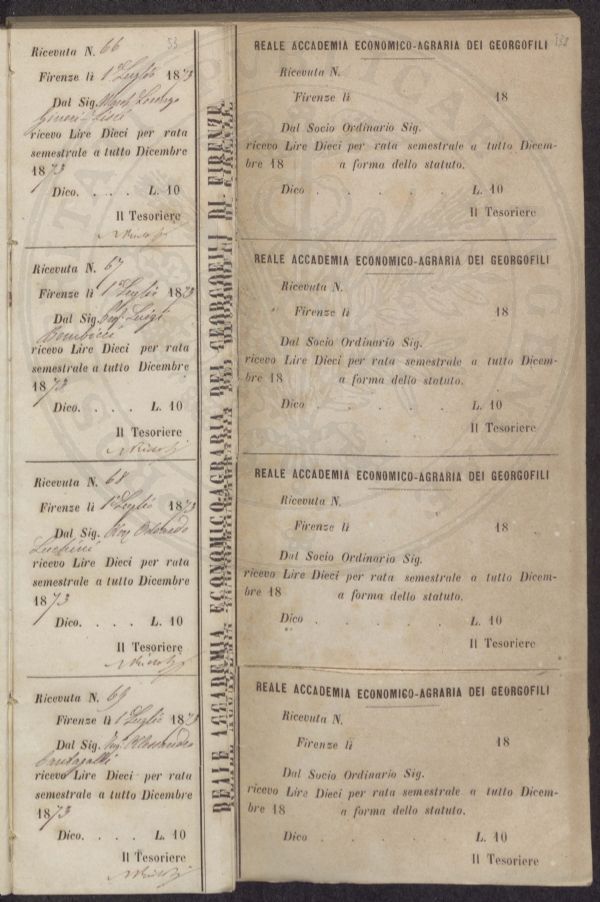 53
Ricevuta N. 66
Firenze lì 1° Luglio 1873
Dal Sig. March. Lorenzo
Ginori Lisci
ricevo Lire Dieci per rata
semestrale a tutto Dicembre
1873
Dico. . . . . L. 10
Il Tesoriere
Ricevuta N. 67
Firenze lì 1° Luglio 1873
Dal Sig. Luigi
Bombicci
ricevo Lire Dieci per rata
semestrale a tutto Dicembre
1873
Dico. . . . . L. 10
Il Tesoriere
Ricevuta N. 68
Firenze lì 1° Luglio 1873
Dal Sig. Odoardo
Luchini
ricevo Lire Dieci per rata
semestrale a tutto Dicembre
1873
Dico. . . . . L. 10
Il Tesoriere
Ricevuta N. 69
Firenze lì 1° Luglio 1873
Dal Sig. Alessandro
Cantagalli
ricevo Lire Dieci per rata
semestrale a tutto Dicembre
1873
Dico. . . . . L. 10
Il Tesoriere
REALE ACCADEMIA ECONOMICO-AGRARIA DEI GEORGOFILI DI FIRENZE
REALE ACCADEMIA ECONOMICO-AGRARIA DEI GEORGOFILI
Ricevuta N.
Firenze lì 18
Dal Socio Ordinario Sig.
ricevo Lire Dieci per rata semestrale a tutto Dicem-
bre 18 a forma dello statuto.
Dico . . . . . L. 10
Il Tesoriere
REALE ACCADEMIA ECONOMICO-AGRARIA DEI GEORGOFILI
Ricevuta N.
Firenze lì 18
Dal Socio Ordinario Sig.
ricevo Lire Dieci per rata semestrale a tutto Dicem-
bre 18 a forma dello statuto.
Dico . . . . . L. 10
Il Tesoriere
REALE ACCADEMIA ECONOMICO-AGRARIA DEI GEORGOFILI
Ricevuta N.
Firenze lì 18
Dal Socio Ordinario Sig.
ricevo Lire Dieci per rata semestrale a tutto Dicem-
bre 18 a forma dello statuto.
Dico . . . . . L. 10
Il Tesoriere
REALE ACCADEMIA ECONOMICO-AGRARIA DEI GEORGOFILI
Ricevuta N.
Firenze lì 18
Dal Socio Ordinario Sig.
ricevo Lire Dieci per rata semestrale a tutto Dicem-
bre 18 a forma dello statuto.
Dico . . . . . L. 10
Il Tesoriere